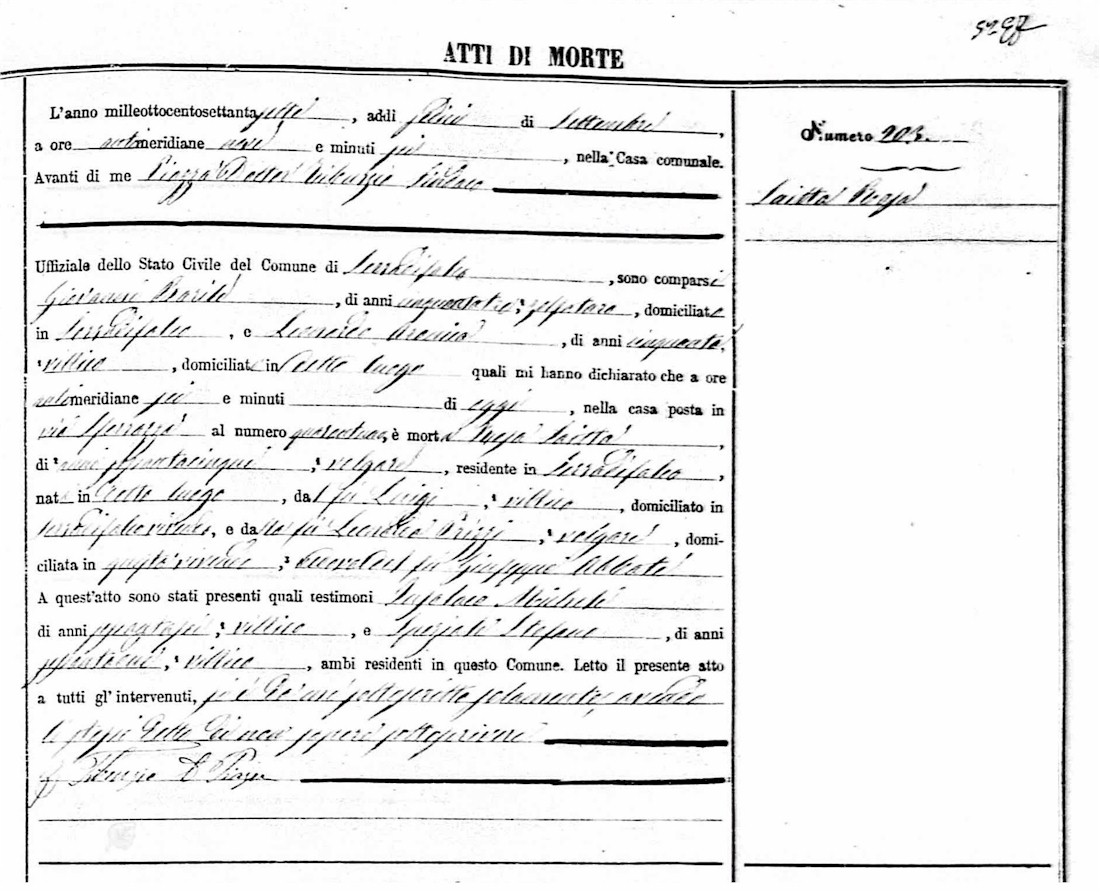 ATTI DI MORTE
L'anno milleottocentosettantasette, addì sedici di Settembre,
a ore antimeridiane nove e minuti sei, nella Casa comunale.
Avanti di me Piazza Dottor Tiburzio Sindaco
Numero 203.
Saitta Rosa
Uffiziale dello Stato Civile del Comune di Serradifalco, sono comparsi
Giovanni Barile, di anni cinquantatre, zolfataro, domiciliato
in Serradifalco, e Leonardo Aronica, di anni cinquanta,
villico, domiciliato in detto luogo quali mi hanno dichiarato che a ore
antimeridiane sei e minuti di oggi, nella casa posta in
via Sferrazza al numero, è morta Rosa Saitta,
di anni sessantacinque, volgare, residente in Serradifalco,
nata in detto luogo, dal fu Luigi, villico, domiciliato in
Serradifalco vivendo, e dalla fu Leonarda Rizzi, volgare, domi-
ciliata in questo vivendo, vedova del fu Giuseppe Abbate
A quest'atto sono stati presenti quali testimoni Michele
di anni, villico, e Speziale Stefano, di anni
villico, ambi residenti in questo Comune. Letto il presente atto
a tutti gl'intervenuti, si è da me sottoscritto solamente, avendo
li stessi detto di non sapere sottoscrivere
Tiburzio D. Piazza